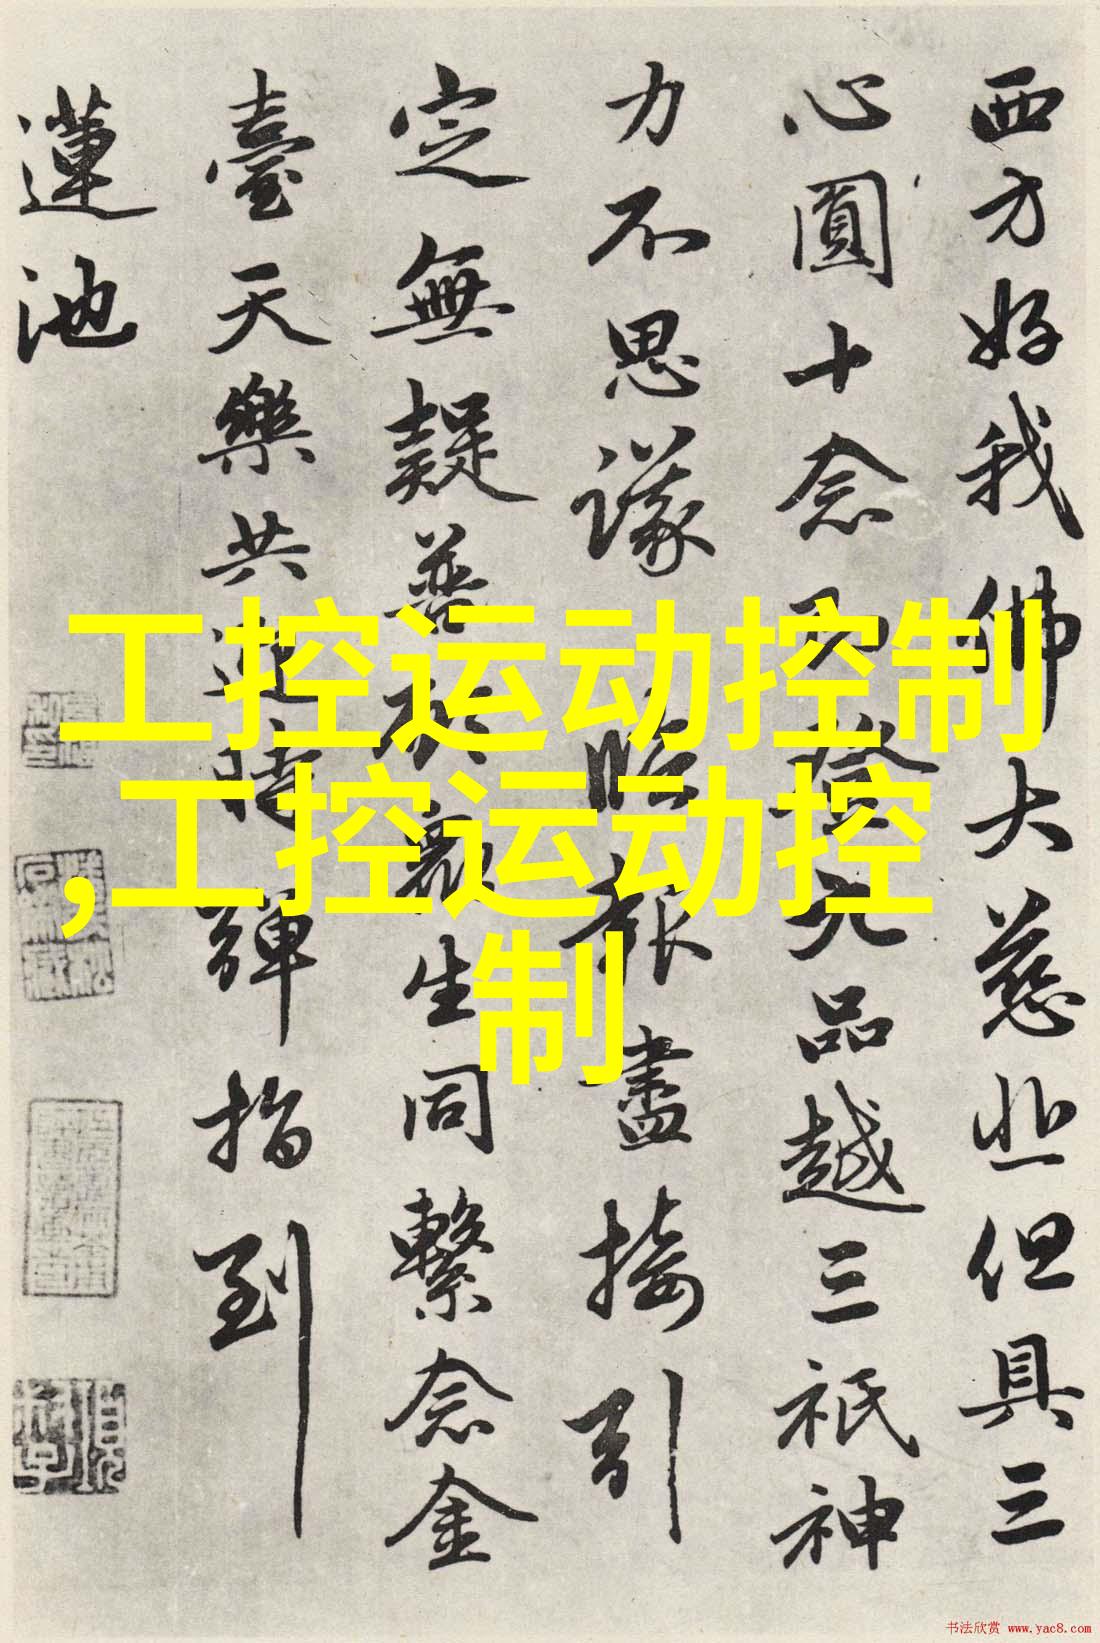 西方好我佛大慈悲但具三
心圓十念即登九品越三祇神
力不思議臨報盡接引
定無疑普於衆生同繫念金
臺天樂共迎時彈指到
蓮池
工控运动控制
,工控运动控
制
书法欣赏 www.yac8.com